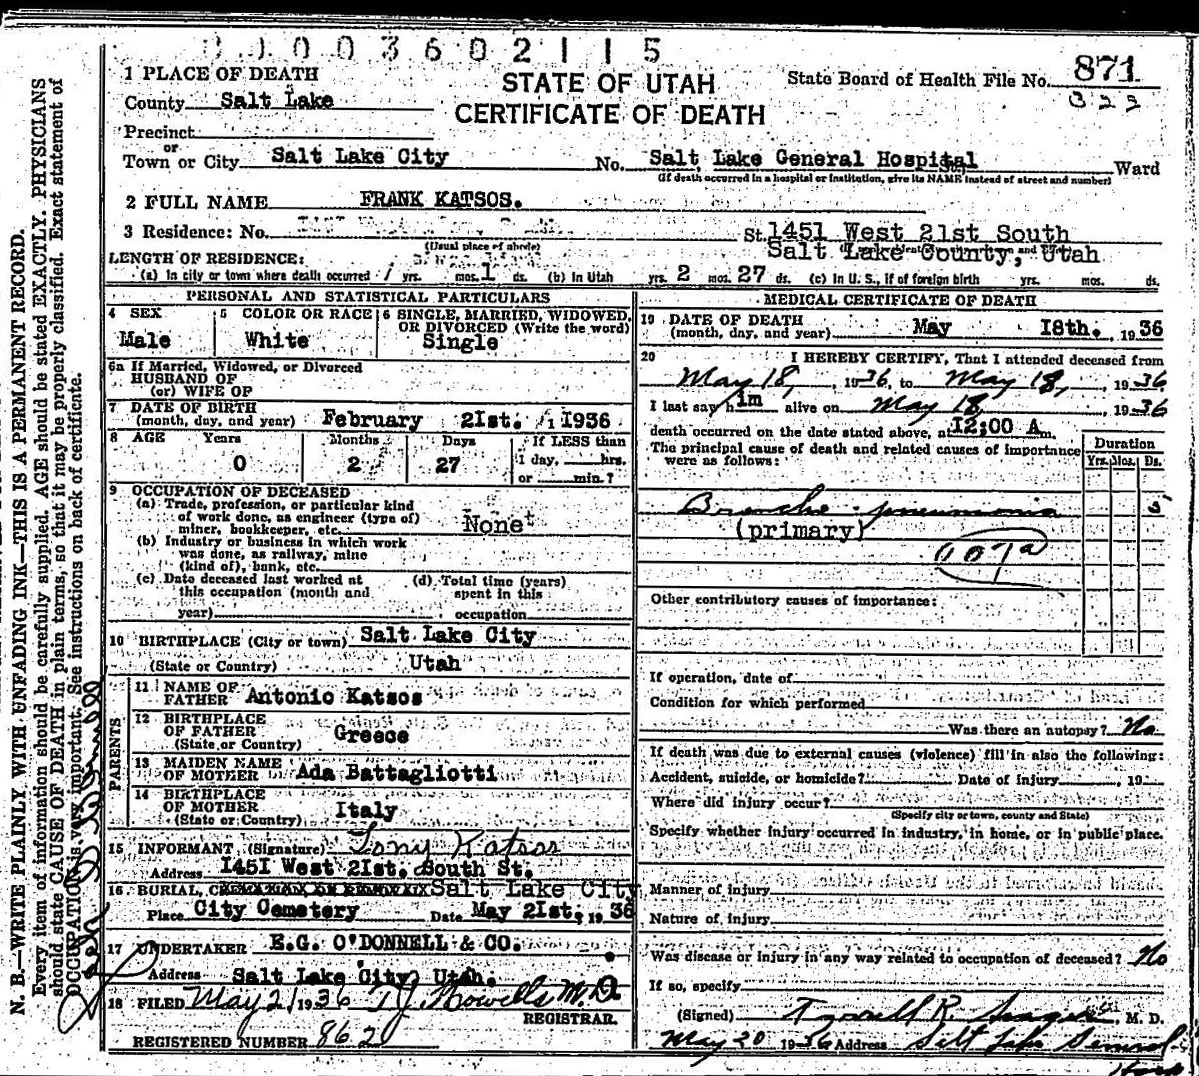 0003602115
STATE OF UTAH
CERTIFICATE OF DEATH
State Board of Health File No. 871
322
1 PLACE OF DEATH
County Salt Lake
Precinct
or
Town or City Salt Lake City No. Salt Lake General Hospital St. Ward
(If death occurred in a hospital or institution, give its NAME instead of street and number)
2 FULL NAME FRANK KATSOS.
3 Residence: No. St. 1451 West 21st South
(Usual place of abode) Salt Lake County, Utah
LENGTH OF RESIDENCE:
(a) In city or town where death occurred yrs. mos. 1 ds. (b) In Utah yrs. 2 mos. 27 ds. (c) In U. S., if of foreign birth yrs. mos. ds.
PERSONAL AND STATISTICAL PARTICULARS
4 SEX Male
5 COLOR OR RACE White
6 SINGLE, MARRIED, WIDOWED, OR DIVORCED (Write the word) Single
6a If Married, Widowed, or Divorced
HUSBAND OF
(or) WIFE OF
7 DATE OF BIRTH
(month, day, and year) February 21st. 1936
8 AGE Years Months Days If LESS than
0 2 27 1 day, hrs.
or min.?
9 OCCUPATION OF DECEASED
(a) Trade, profession, or particular kind
of work done, as engineer (type of)
miner, bookkeeper, etc. None
(b) Industry or business in which work
was done, as railway, mine
(kind of), bank, etc.
(c) Date deceased last worked at
this occupation (month and
year)
(d) Total time (years)
spent in this
occupation
10 BIRTHPLACE (City or town) Salt Lake City
(State or Country) Utah
PARENTS
11 NAME OF
FATHER Antonio Katsos
12 BIRTHPLACE
OF FATHER Greece
(State or Country)
13 MAIDEN NAME
OF MOTHER Ada Battagliotti
14 BIRTHPLACE
OF MOTHER Italy
(State or Country)
15 INFORMANT (Signature) Tony Katsos
Address 1451 West 21st. South St.
16 BURIAL, CREMATION OR REMOVAL Salt Lake City
Place City Cemetery Date May 21st, 1936
17 UNDERTAKER E.G. O'DONNELL & CO.
Address Salt Lake City, Utah.
18 FILED May 21 1936 T J Howells M.D.
REGISTRAR.
REGISTERED NUMBER 862
MEDICAL CERTIFICATE OF DEATH
19 DATE OF DEATH
(month, day, and year) May 18th. , 1936
20 I HEREBY CERTIFY, That I attended deceased from
May 18, , 1936, to May 18, , 1936
I last say him alive on May 18, , 1936
death occurred on the date stated above, at 12:00 A m.
The principal cause of death and related causes of importance
were as follows:
Duration
Yrs. Mos. Ds.
Broncho-pneumonia 5
(primary)
107a
Other contributory causes of importance:
If operation, date of
Condition for which performed
Was there an autopsy? No
If death was due to external causes (violence) fill in also the following:
Accident, suicide, or homicide? Date of injury , 19
Where did injury occur?
(Specify city or town, county and State)
Specify whether injury occurred in industry, in home, or in public place.
Manner of injury
Nature of injury
Was disease or injury in any way related to occupation of deceased? No
If so, specify
(Signed) R. M. D.
May 20 1936 Address Salt Lake General
Hosp
N. B.—WRITE PLAINLY WITH UNFADING INK—THIS IS A PERMANENT RECORD.
Every item of information should be carefully supplied. AGE should be stated EXACTLY. PHYSICIANS
should state CAUSE OF DEATH in plain terms, so that it may be properly classified. Exact statement of
OCCUPATION is very important. See instructions on back of certificate.